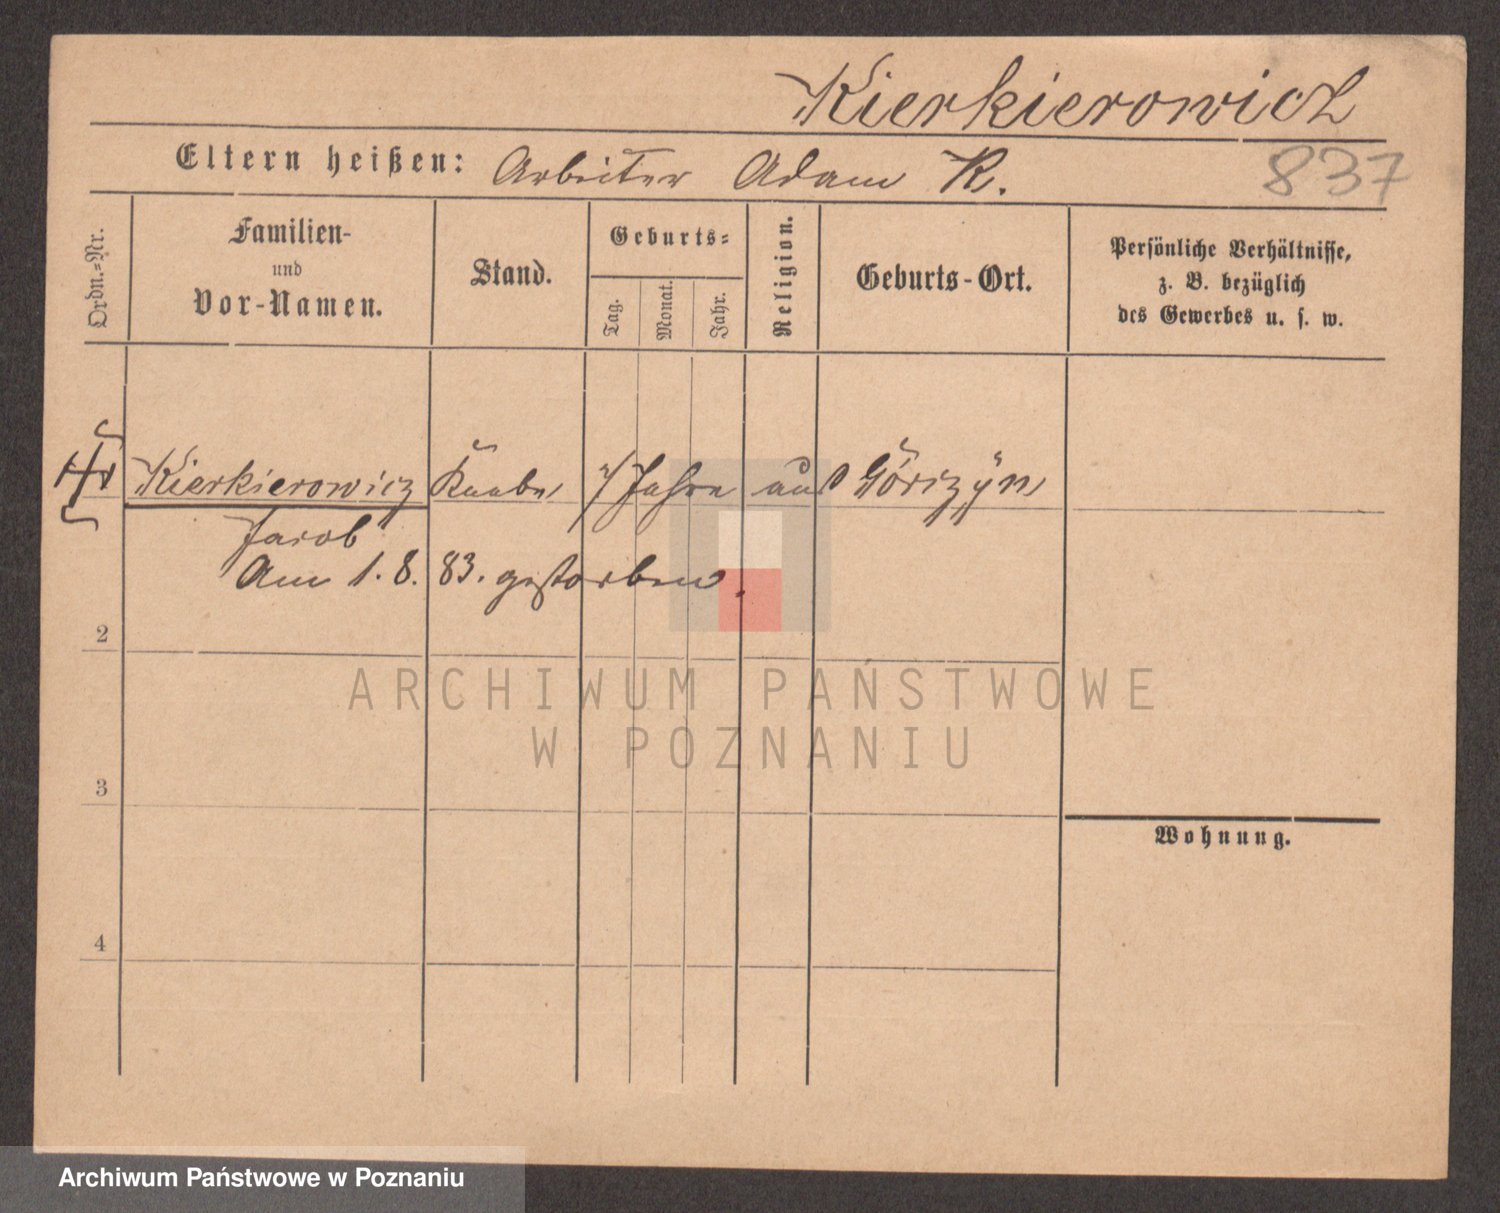 Kierkierowicz
Eltern heißen: Arbeiter Adam K.
837
Ordn.=Nr.
Familien-
und
Vor-Namen.
Stand.
Geburts=
Tag.
Monat.
Jahr.
Religion.
Geburts-Ort.
Persönliche Verhältnisse,
z. B. bezüglich
des Gewerbes u. s. w.
Kierkierowicz Knabe 7 Jahre aus
Jacob
Am 1. 8. 83. gestorben.
2
ARCHIWUM PAŃSTWOWE
W POZNANIU
3
Wohnung.
4
Archiwum Państwowe w Poznaniu